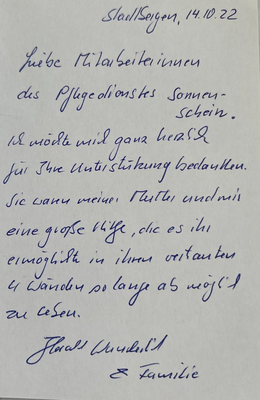 Stadtbergen, 14.10.22
Liebe Mitarbeiterinnen
des Pflegedienstes Sonnen-
schein.
Ich möchte mich ganz herzlich
für Ihre Unterstützung bedanken.
Sie waren meiner Mutter und mir
eine große Hilfe, die es ihr
ermöglichte in ihren vertrauten
4 Wänden so lange als möglich
zu leben.
& Familie